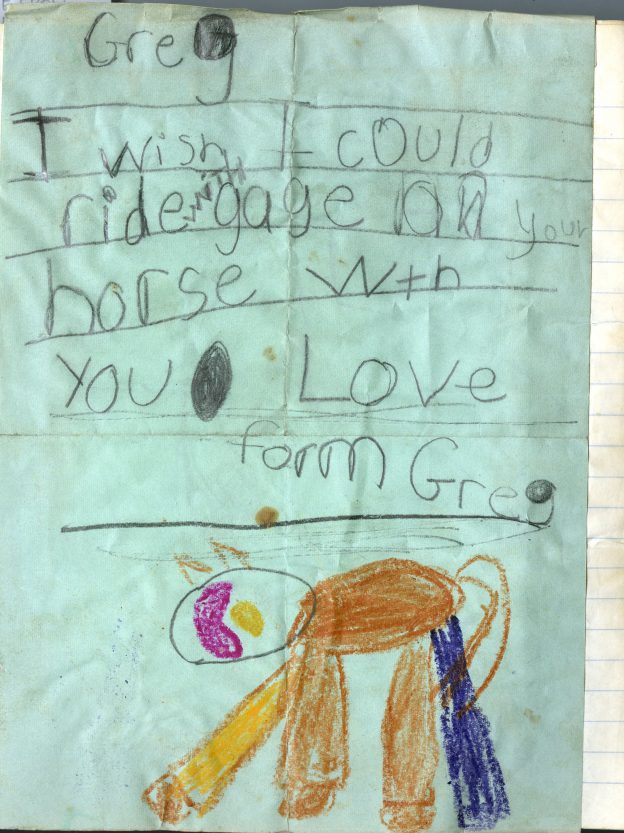 Greg
I wish I could
ride with gage on your
horse wth
you Love
form Greg